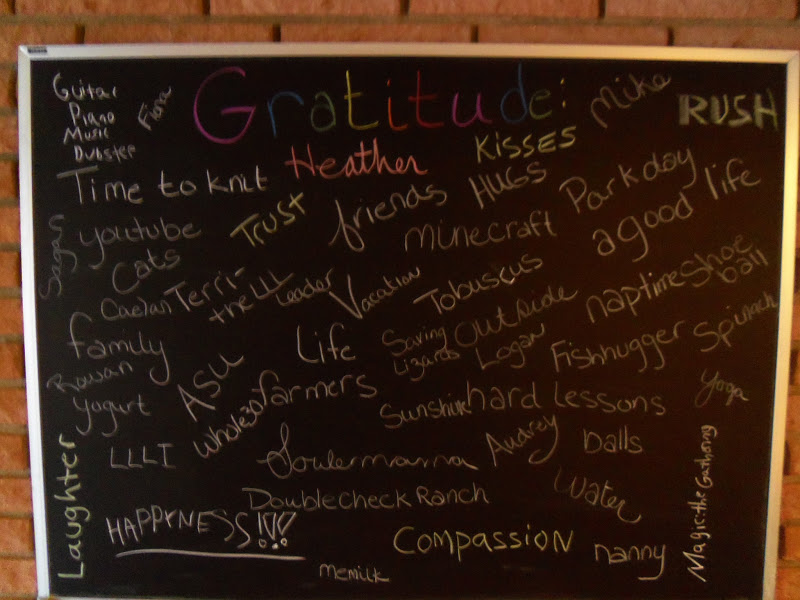 Gratitude:
Guitar
Piano
Music
Dubstep
Fiona
Mike
RUSH
Heather
KISSES
Time to knit
Trust
friends
HUGS
Park day
a good life
Sagan
youtube
minecraft
Cats
Caelan
Terri-
the LLL
Leader
Vacation
Tobuscus
Outside
naptime
Shoe
ball
family
Life
Saving
Lizards
Logan
Fishhugger
Spinach
Rowan
yogurt
ASU
whole30
farmers
Sunshine
hard lessons
Yoga
Laughter
LLLI
Soulemama
Audrey
balls
Magic-the Gathering
Doublecheck Ranch
Water
HAPPYNESS!!!
COMPASSION
nanny
memilk